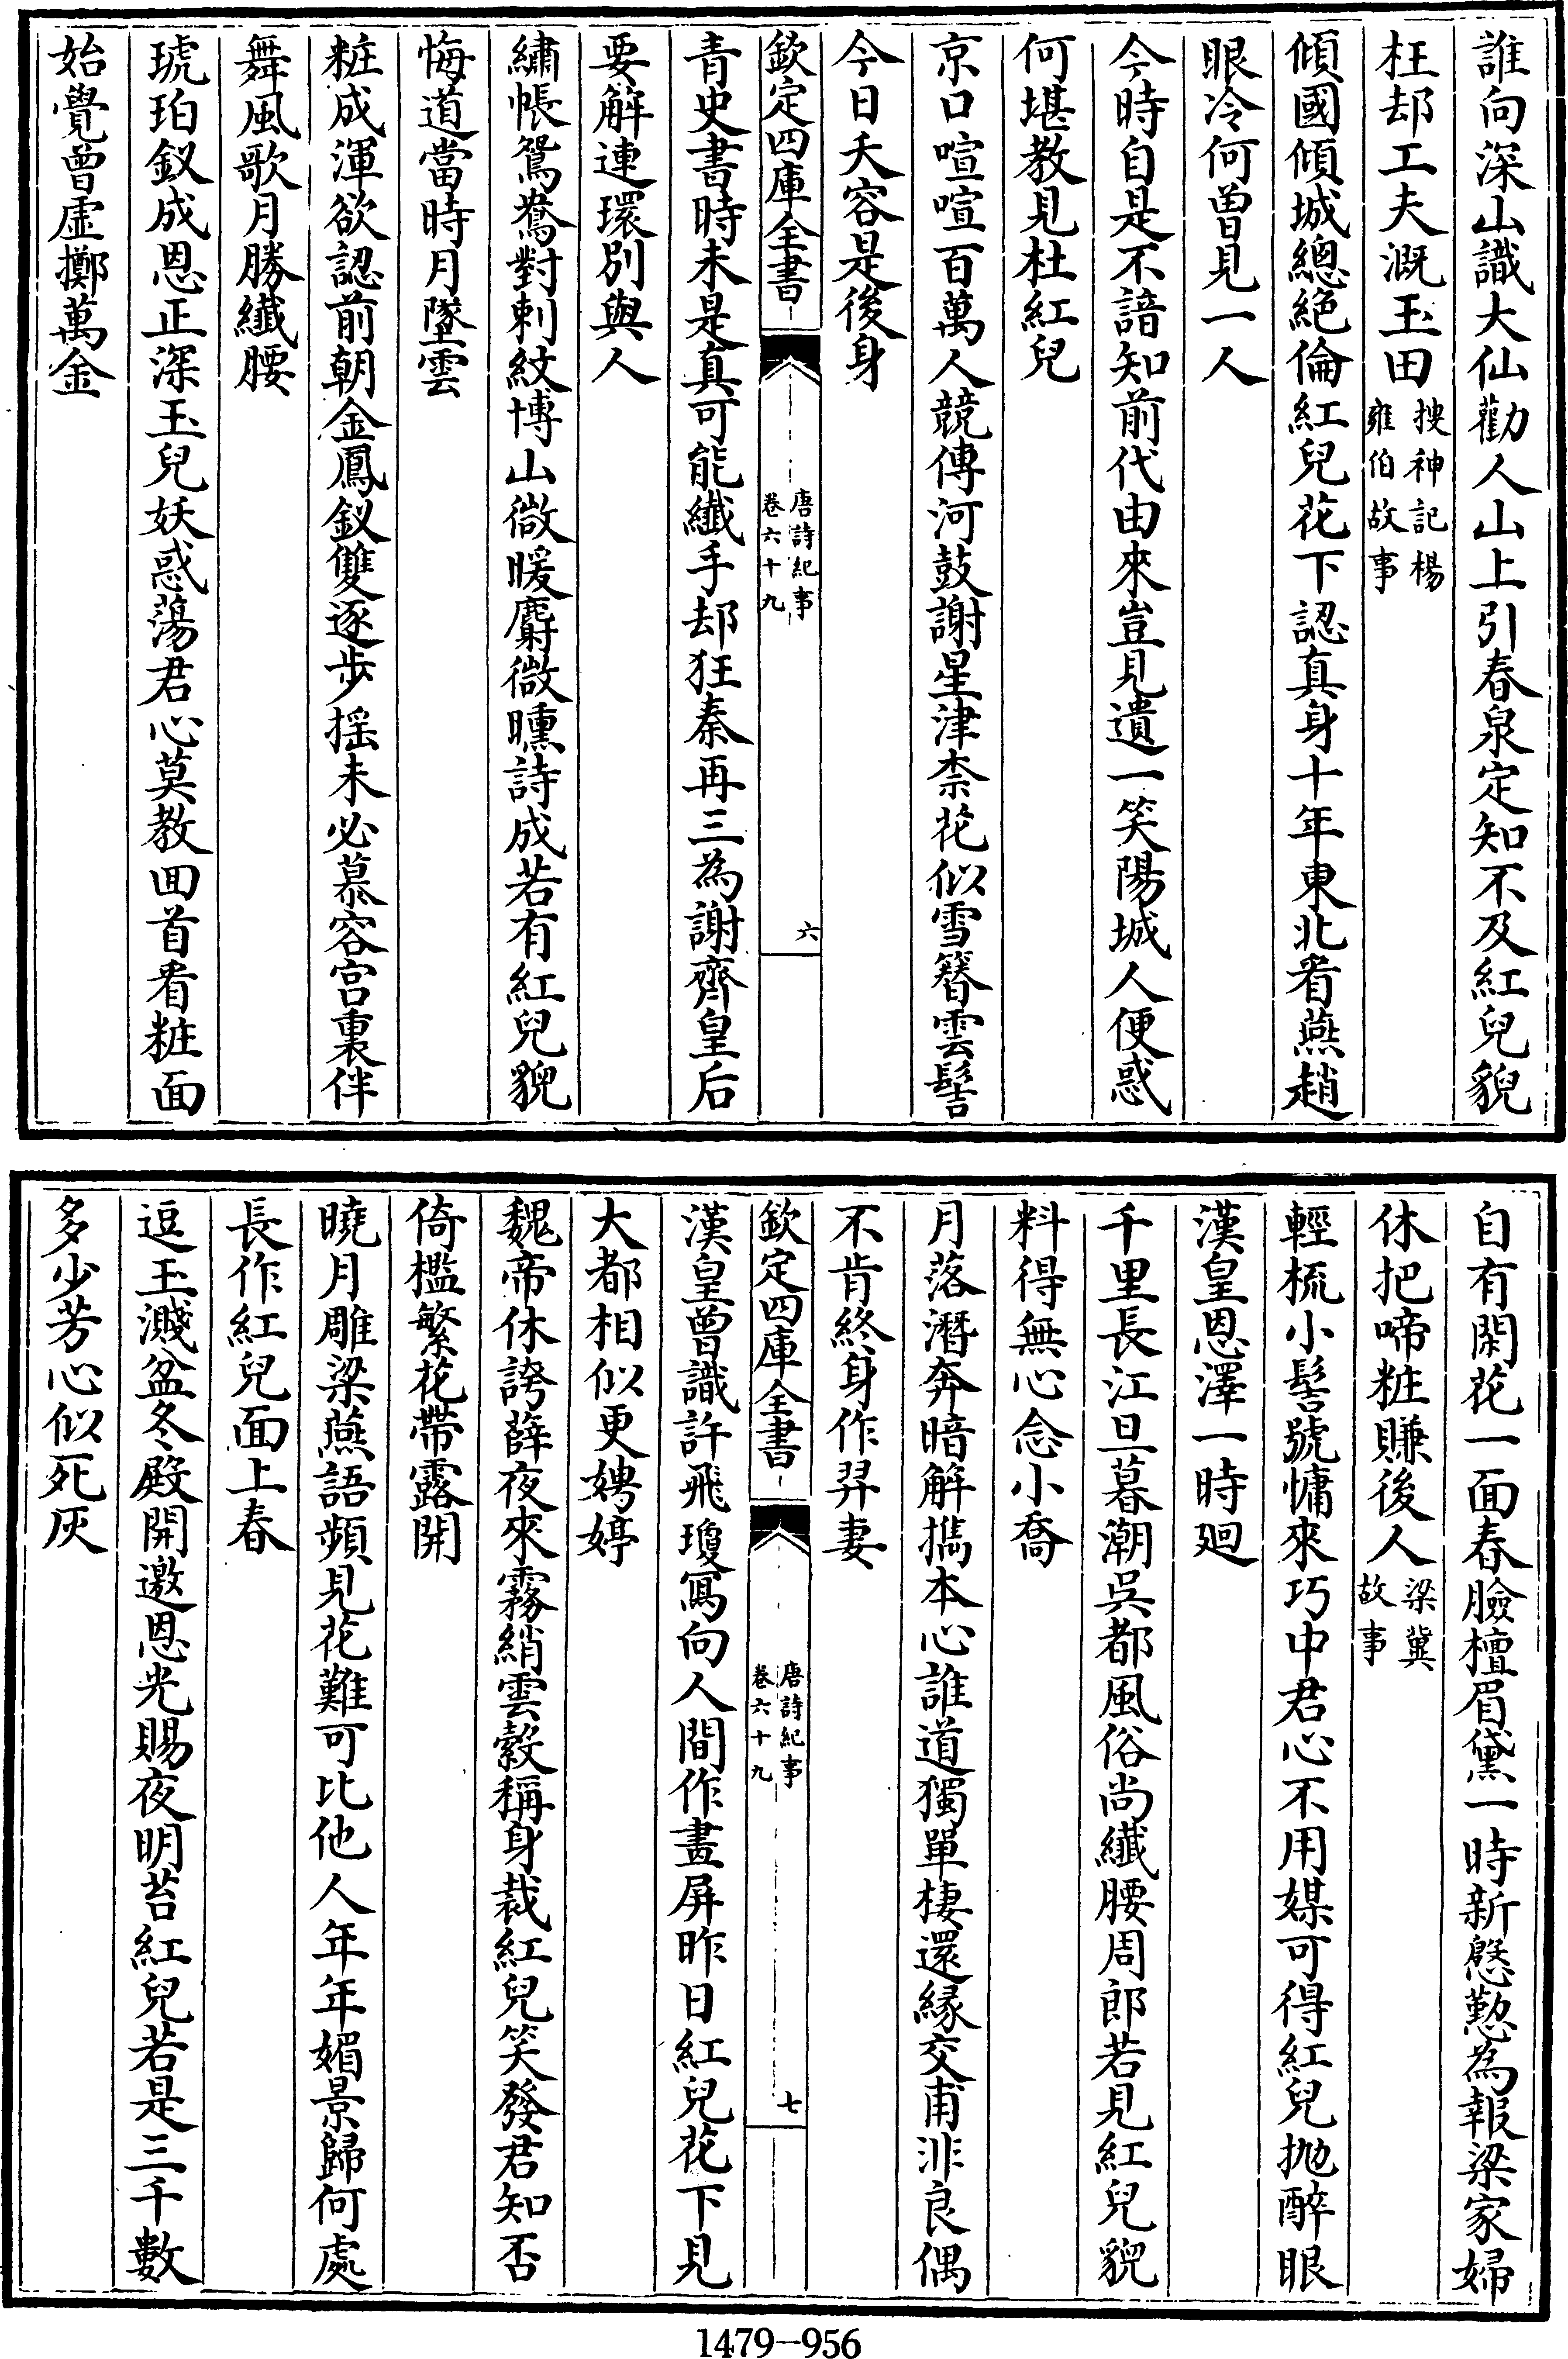 誰向深山識大仙勸人山上引春泉定知不及紅兒貌
枉却工夫溉玉田搜神記楊雍伯故事
傾國傾城總絶倫紅兒花下認真身十年東北看燕趙
眼冷何曾見一人
今時自是不諳知前代由來豈見遺一笑陽城人便惑
何堪教見杜紅兒
京口喧喧百萬人競傳河鼓謝星津柰花似雪簪雲髻
今日夭容是後身
欽定四庫全書
唐詩紀事
卷六十九
六
青史書時未是真可能纖手却狂秦再三為謝齊皇后
要解連環別與人
繡帳鴛鴦對刺紋博山微暖麝微曛詩成若有紅兒貌
悔道當時月墜雲
粧成渾欲認前朝金鳳釵雙逐步揺未必慕容宮裏伴
舞風歌月勝纖腰
琥珀釵成恩正深玉兒妖惑蕩君心莫教回首看粧面
始覺曾虛擲萬金
自有閑花一面春臉檀眉黛一時新慇懃為報梁家婦
休把啼粧賺後人梁冀故事
輕梳小髻號慵來巧中君心不用媒可得紅兒抛醉眼
漢皇恩澤一時廻
千里長江旦暮潮吳都風俗尚纖腰周郎若見紅兒貌
料得無心念小喬
月落潛奔暗解攜本心誰道獨單棲還緣交甫非良偶
不肯終身作羿妻
欽定四庫全書
唐詩紀事
卷六十九
七
漢皇曾識許飛瓊寫向人間作畫屏昨日紅兒花下見
大都相似更娉婷
魏帝休誇薛夜來霧綃雲縠稱身裁紅兒笑發君知否
倚檻繁花帶露開
曉月雕梁燕語頻見花難可比他人年年媚景歸何處
長作紅兒面上春
逗玉濺盆冬殿開邀恩光賜夜明苔紅兒若是三千數
多少芳心似死灰
1479-956